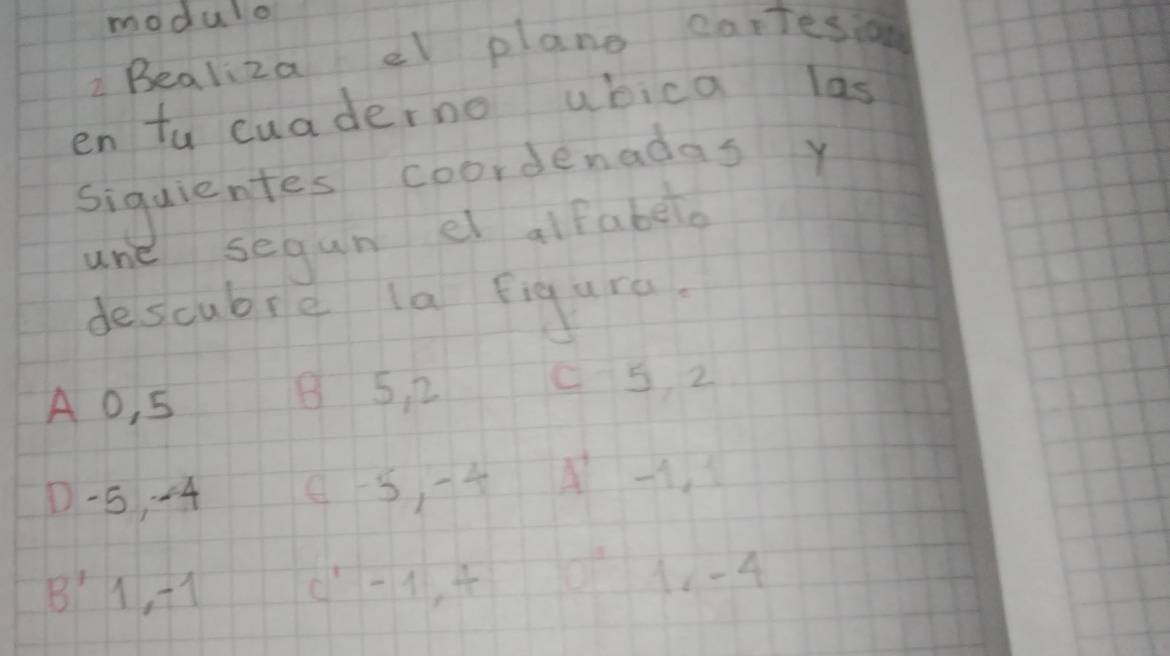 modulo
2 Bealiza el plano cartesiano
en tu cuaderno ubica las
siguientes coordenadas y
une segun el alfabeto
descubre la figura.
A 0,5 B 5,2 C 5,2
D -5,-4 E -5,-4 A' -1,1
B' 1,-1 C' -1, D' 1,-4